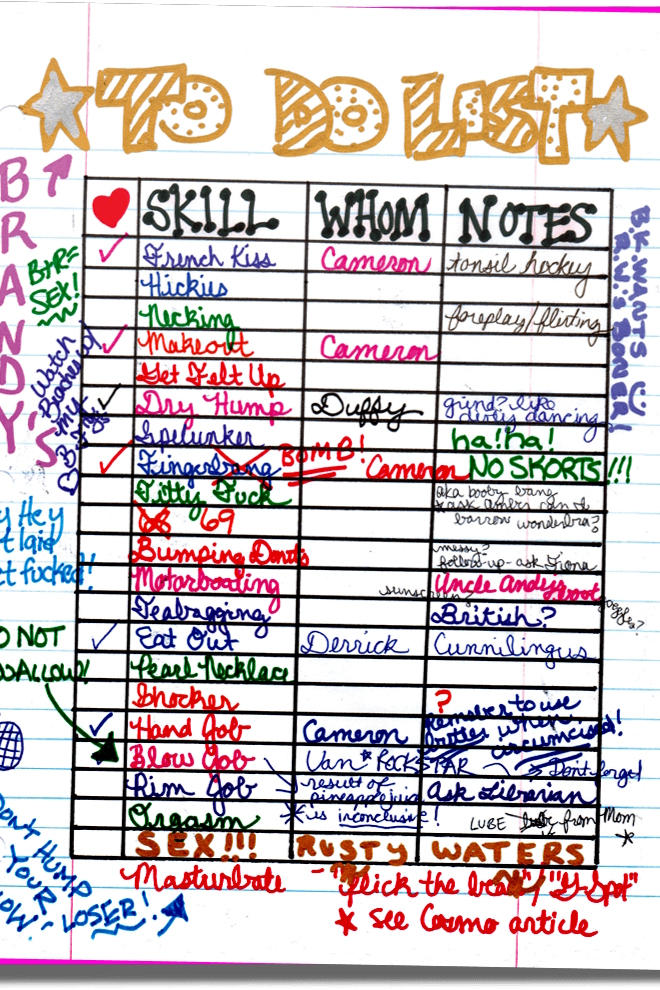 TO DO LIST
BRANDY'S
SKILL WHOM NOTES
French Kiss Cameron tonsil hockey
Hickies
Necking foreplay/flirting
Makeout Cameron
Get Felt Up
Dry Hump Duffy grind? like
dirty dancing
Spelunker ha!ha!
Fingerbang BOMB! Cameron NO SKORTS!!!
Titty Fuck aka booby bang
69 barrow wonderbra?
Bumping Donuts messy?
follow up - ask Fiona
Motorboating sunscreen? Uncle Andy's boat goggles?
Teabagging British?
Eat Out Derrick Cunnilingus
Pearl Necklace
Shocker ?
Hand Job Cameron Remember to use
lotion when
circumcised!
Blow Job Van * ROCKSTAR Don't forget
Rim Job result of
pineapple juice
* is inconclusive! Ask Librarian
Orgasm LUBE from Mom
*
SEX!!! RUSTY WATERS
Masturbate - "flick the bead"/"G-Spot"
* see Cosmo article
BAR=
SEX!
Watch
Beaches w/
my
B.K. WANTS
R.W.'s BONER!
y Hey
t laid
t fucked!!
O NOT
WALLOW!
DON'T HUMP
YOUR
OW, LOSER!